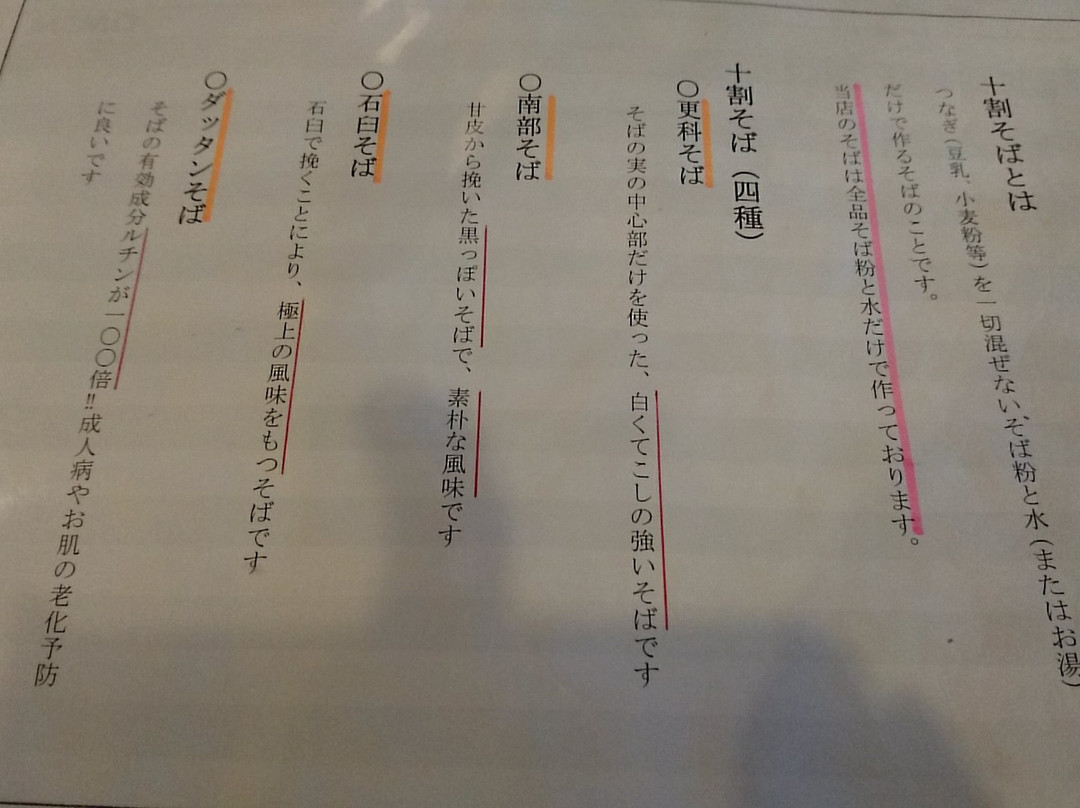 十割そばとは
つなぎ(豆乳、小麦粉等)を一切混ぜない、そば粉と水(またはお湯)
だけで作るそばのことです。
当店のそばは全品そば粉と水だけで作っております。
十割そば(四種)
〇更科そば
そばの実の中心部だけを使った、白くてこしの強いそばです
〇南部そば
甘皮から挽いた黒っぽいそばで、素朴な風味です
〇石臼そば
石臼で挽くことにより、極上の風味をもつそばです
〇ダッタンそば
そばの有効成分ルチンが一〇〇倍!!成人病やお肌の老化予防
に良いです